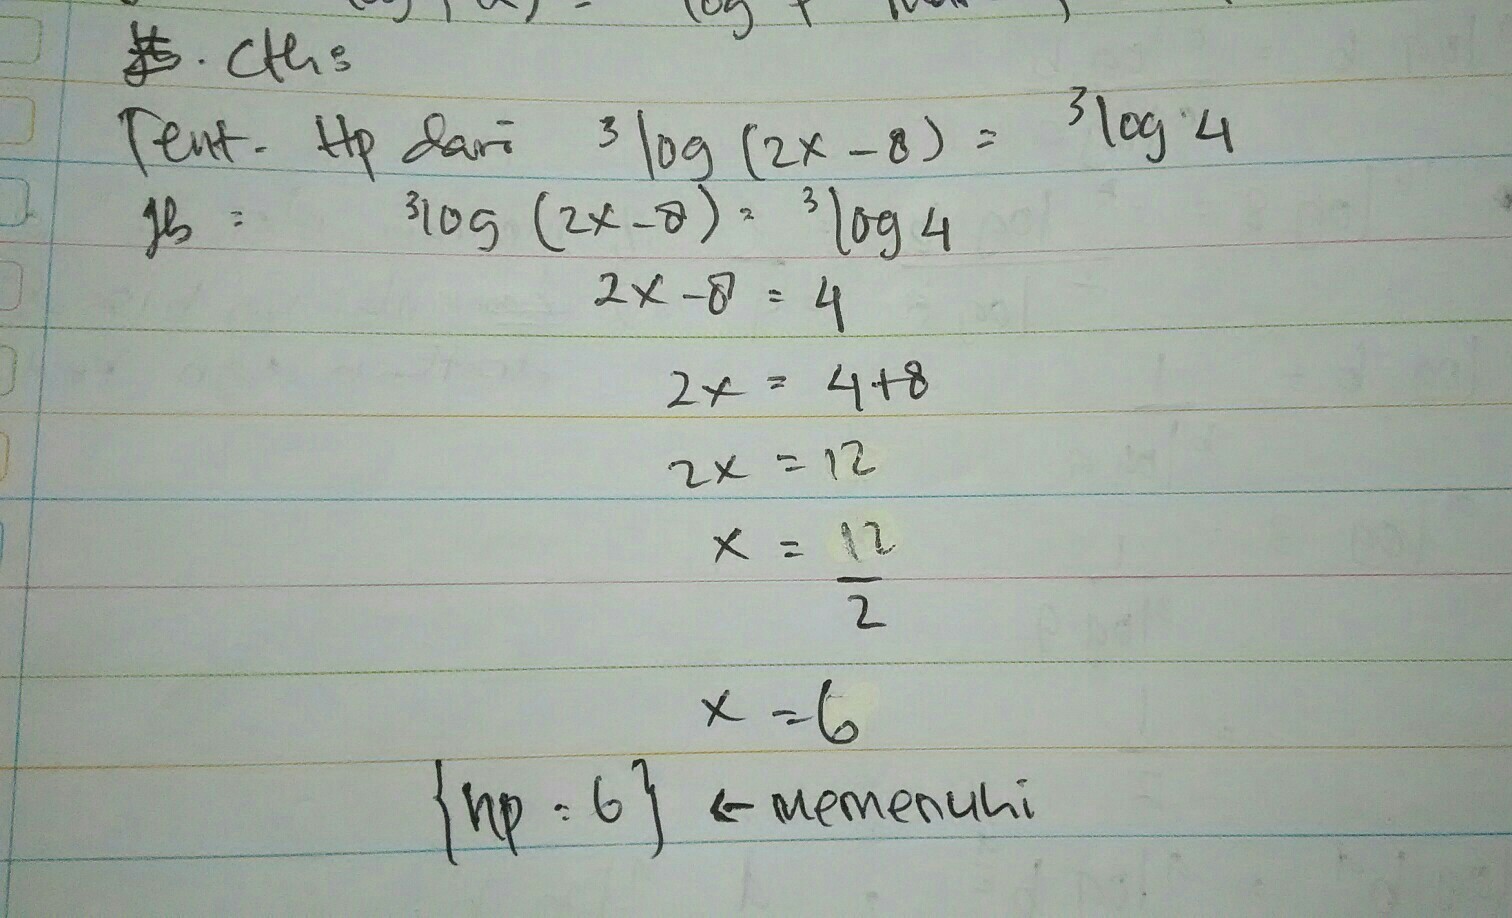 . Cths
Tent. Hp dari ³log (2x-8) = ³log 4
Jb = ³log (2x-8) = ³log 4
2x-8 = 4
2x = 4+8
2x = 12
x = 12
2
x = 6
{hp = 6} ← memenuhi